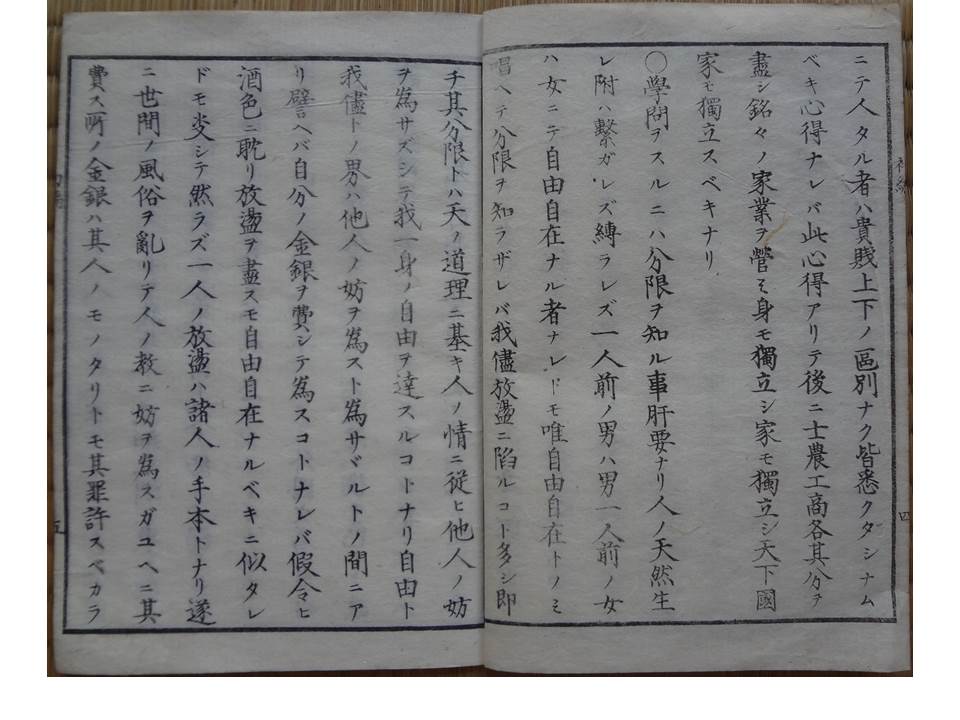 ニテ人タル者ハ貴賤上下ノ區別ナク皆悉クタシナム
ベキ心得ナレバ此心得アリテ後ニ士農工商各其分ヲ
盡シ銘々ノ家業ヲ營ミ身モ獨立シ家モ獨立シ天下國
家モ獨立スベキナリ
〇學問ヲスルニハ分限ヲ知ル事肝要ナリ人ノ天然生
レ附ハ繫ガレズ縛ラレズ一人前ノ男ハ男一人前ノ女
ハ女ニテ自由自在ナル者ナレドモ唯自由自在トノミ
唱ヘテ分限ヲ知ラザレバ我儘放盪ニ陷ルコト多シ即
四
チ其分限トハ天ノ道理ニ基キ人ノ情ニ從ヒ他人ノ妨
ヲ爲サズシテ我一身ノ自由ヲ達スルコトナリ自由ト
我儘トノ界ハ他人ノ妨ヲ爲スト爲サヾルトノ間ニア
リ譬ヘバ自分ノ金銀ヲ費シテ爲スコトナレバ假令ヒ
酒色ニ耽リ放盪ヲ盡スモ自由自在ナルベキニ似タレ
ドモ决シテ然ラズ一人ノ放盪ハ諸人ノ手本トナリ遂
ニ世間ノ風俗ヲ亂リテ人ノ敎ニ妨ヲ爲スガユヘニ其
費ス所ノ金銀ハ其人ノモノタリトモ其罪許スベカラ
五